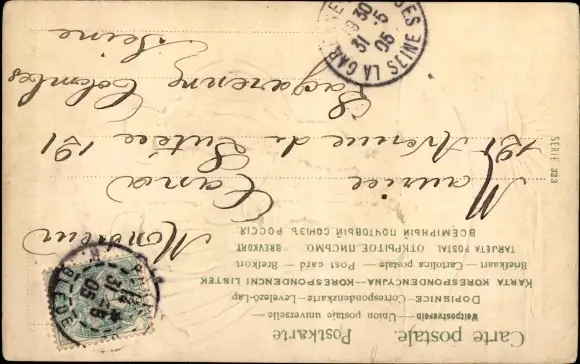 Carte postale. Postkarte
Weltpostverein — Union postale universelle —
DOPISNICE — Correspondenzkarte — Levelezö-Lap
KARTA KORESPONDENCYJNA — KORESPONDENČNI LISTEK
Briefkaart — Cartolina postale — Post card — Brefkort —
TARJETA POSTAL ОТКРЫТОЕ ПИСЬМО. BREVKORT
ВСЕМІРНЫЙ ПОЧТОВЫЙ СОЮЗЪ РОССІЯ
SERIE 323
Monsieur
Maurice Canon
191 Avenue de Lutèce 191
Lagarenne Colombes
Seine
LA GARENNE
SEINE
30
31 5
05
31
05